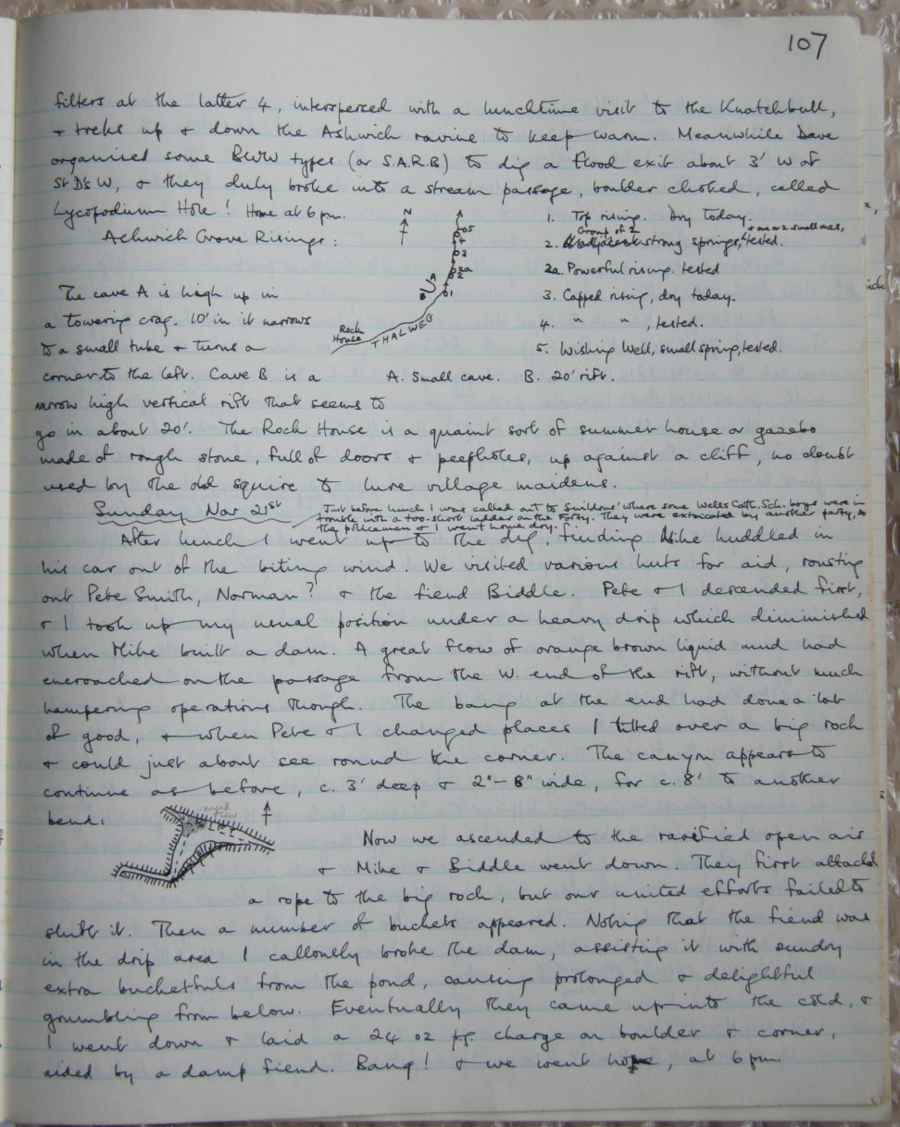 107
filters at the latter 4, interspersed with a lunchtime visit to the Knatchbull,
& treks up & down the Ashwick ravine to keep warm. Meanwhile Dave
organised some BWW types (or S.A.R.B) to dig a flood exit about 3' W of
St D's W, & they duly broke into a stream passage, boulder choked, called
Lycopodium Hole! Home at 6 pm.
Ashwick Grove Risings:
N
5
4
3
2a
2
1
A
B
Rock House
THALWEG
1. Top rising. Dry today.
Group of 2
2. strong springs, tested.
2a. Powerful rising. tested
3. Capped rising, dry today.
4. " " , tested.
5. Wishing Well, small spring, tested.
A. Small cave. B. 20' rift.
The cave A is high up in
a towering crag. 10' in it narrows
to a small tube & turns a
corner to the left. Cave B is a
narrow high vertical rift that seems to
go in about 20'. The Rock House is a quaint sort of summer house or gazebo
made of rough stone, full of doors & peepholes, up against a cliff, no doubt
used by the old squire to lure village maidens.
Sunday Nov 21st
Just before lunch I was called out to Swildons where some Wells Cath. Sch. boys were in
trouble with a too-short ladder on the Forty. They were extricated by another party, so
the policeman & I went home dry.
After lunch I went up to the dig, finding Mike huddled in
his car out of the biting wind. We visited various huts for aid, rousting
out Pete Smith, Norman? & the fiend Biddle. Pete & I descended first,
& I took up my usual position under a heavy drip which diminished
when Mike built a dam. A great flow of orange brown liquid mud had
encroached on the passage from the W. end of the rift, without much
hampering operations though. The bang at the end had done a lot
of good, & when Pete & I changed places I tilted over a big rock
& could just about see round the corner. The canyon appears to
continue as before, c. 3' deep & 2"-8" wide, for c. 8' to another
bend.
Now we ascended to the rarified open air
& Mike & Biddle went down. They first attached
a rope to the big rock, but our united efforts failed to
shift it. Then a number of buckets appeared. Noting that the fiend was
in the drip area I callously broke the dam, assisting it with sundry
extra bucketfuls from the pond, causing prolonged & delightful
grumbling from below. Eventually they came up into the cold, &
I went down & laid a 24 oz pg. charge on boulder & corner,
aided by a damp fiend. Bang! & we went home, at 6 pm